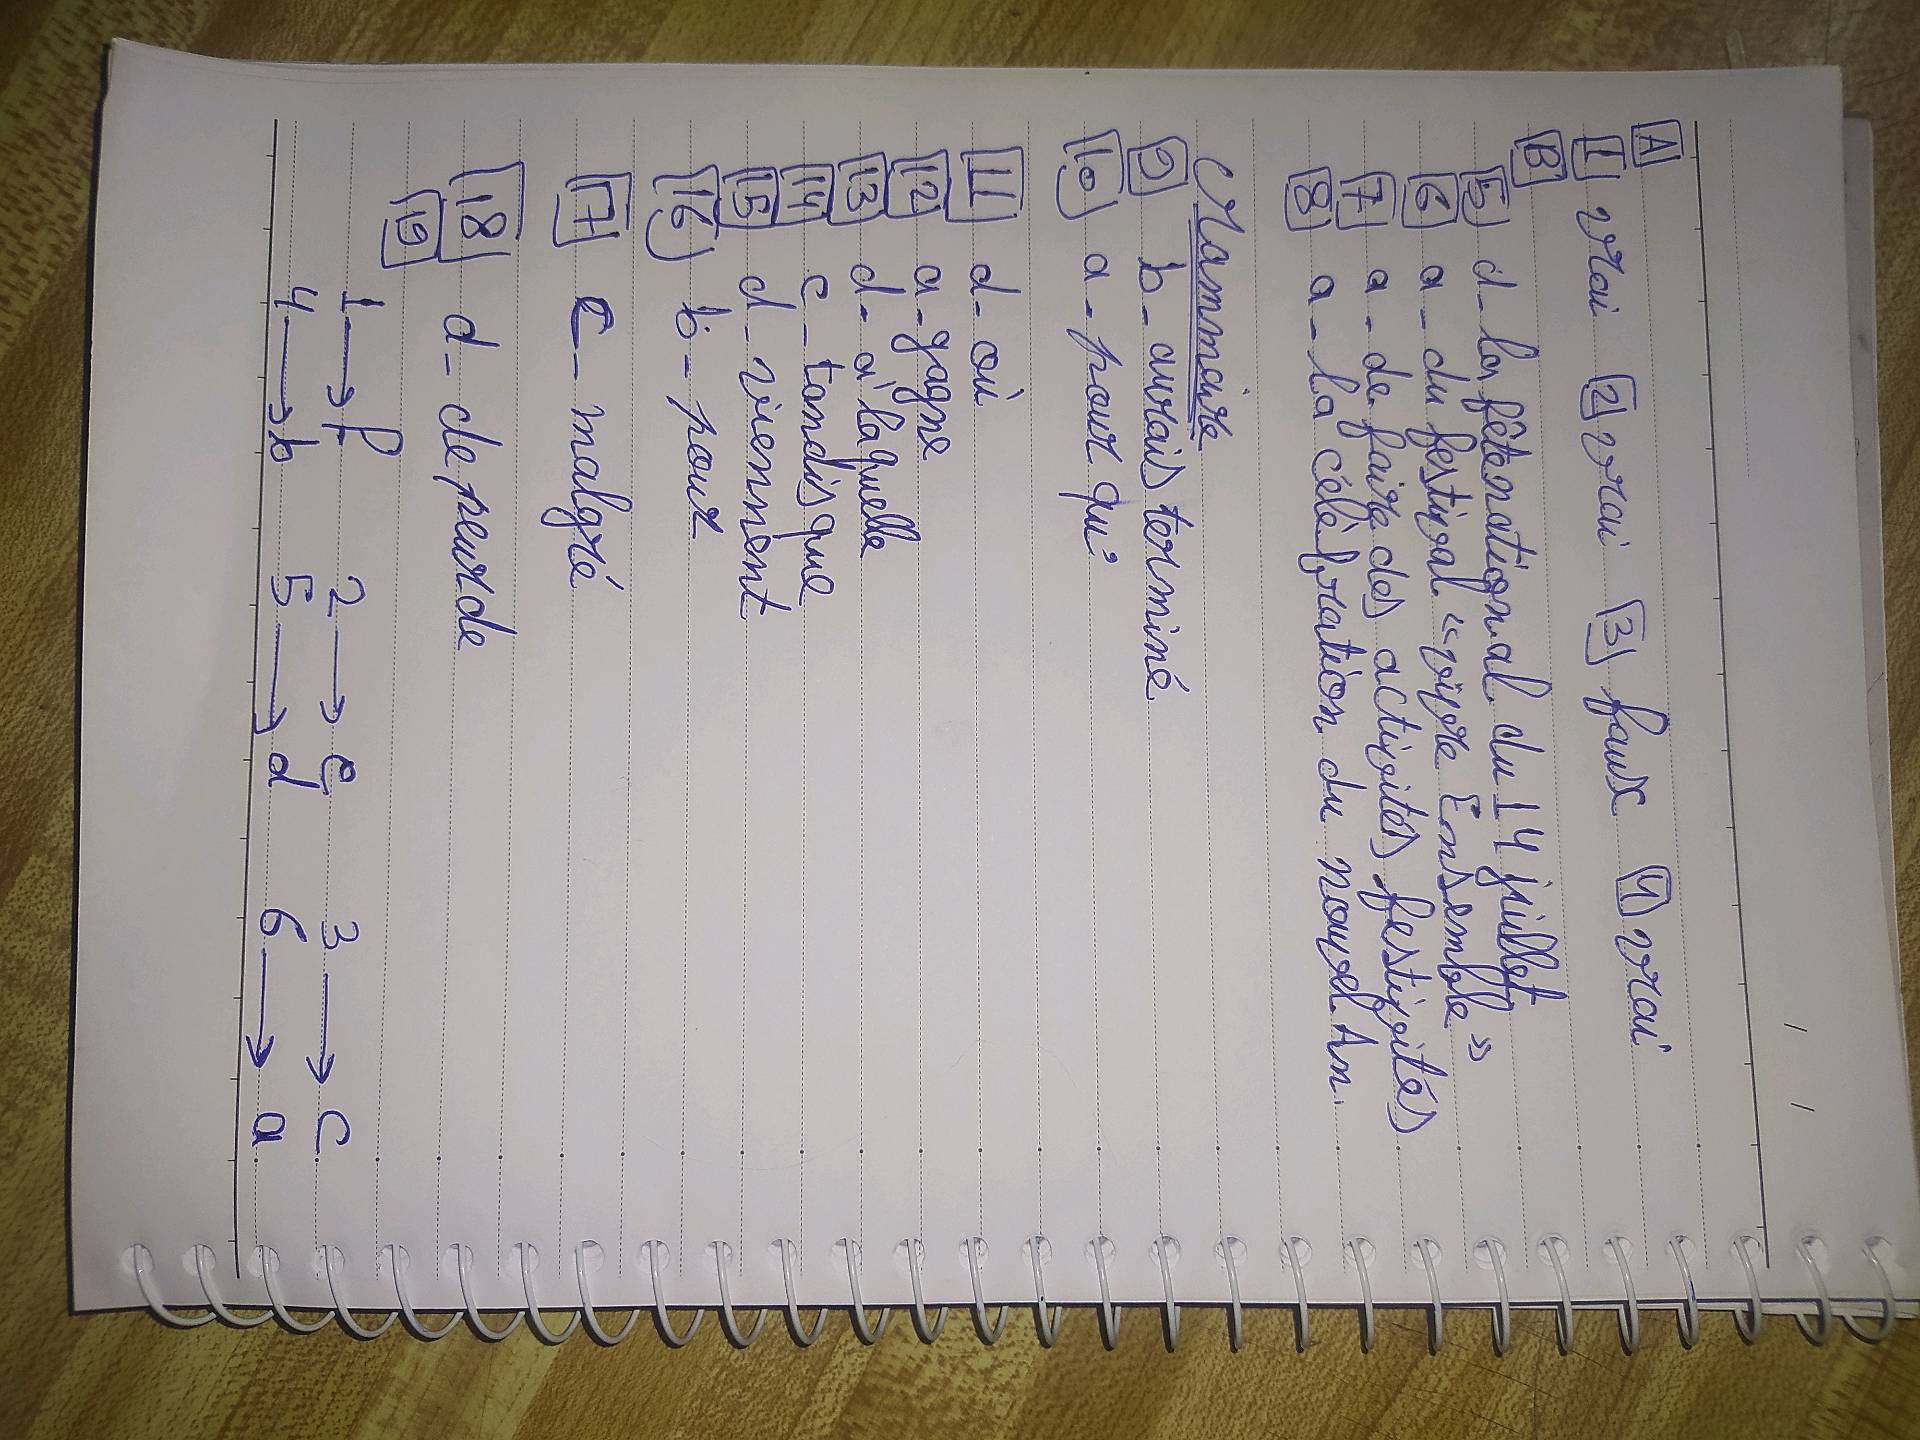 A
1 vrai 2 vrai 3 faux 4 vrai
B
5 d - la fête national du 14 juillet
6 a - du festival "vivre Ensemble"
7 a - de faire des activités festivités
8 a - la célébration du nouvel An.
Mammaire
9 b - aurais terminé
10 a - pour qu'
11 d - où
12 a - gagne
13 d - à laquelle
14 c - tandis que
15 d - viennent
16 b - pour
17 c - malgré
18 d - de peur de
19
1 → f 2 → e 3 → c
4 → b 5 → d 6 → a